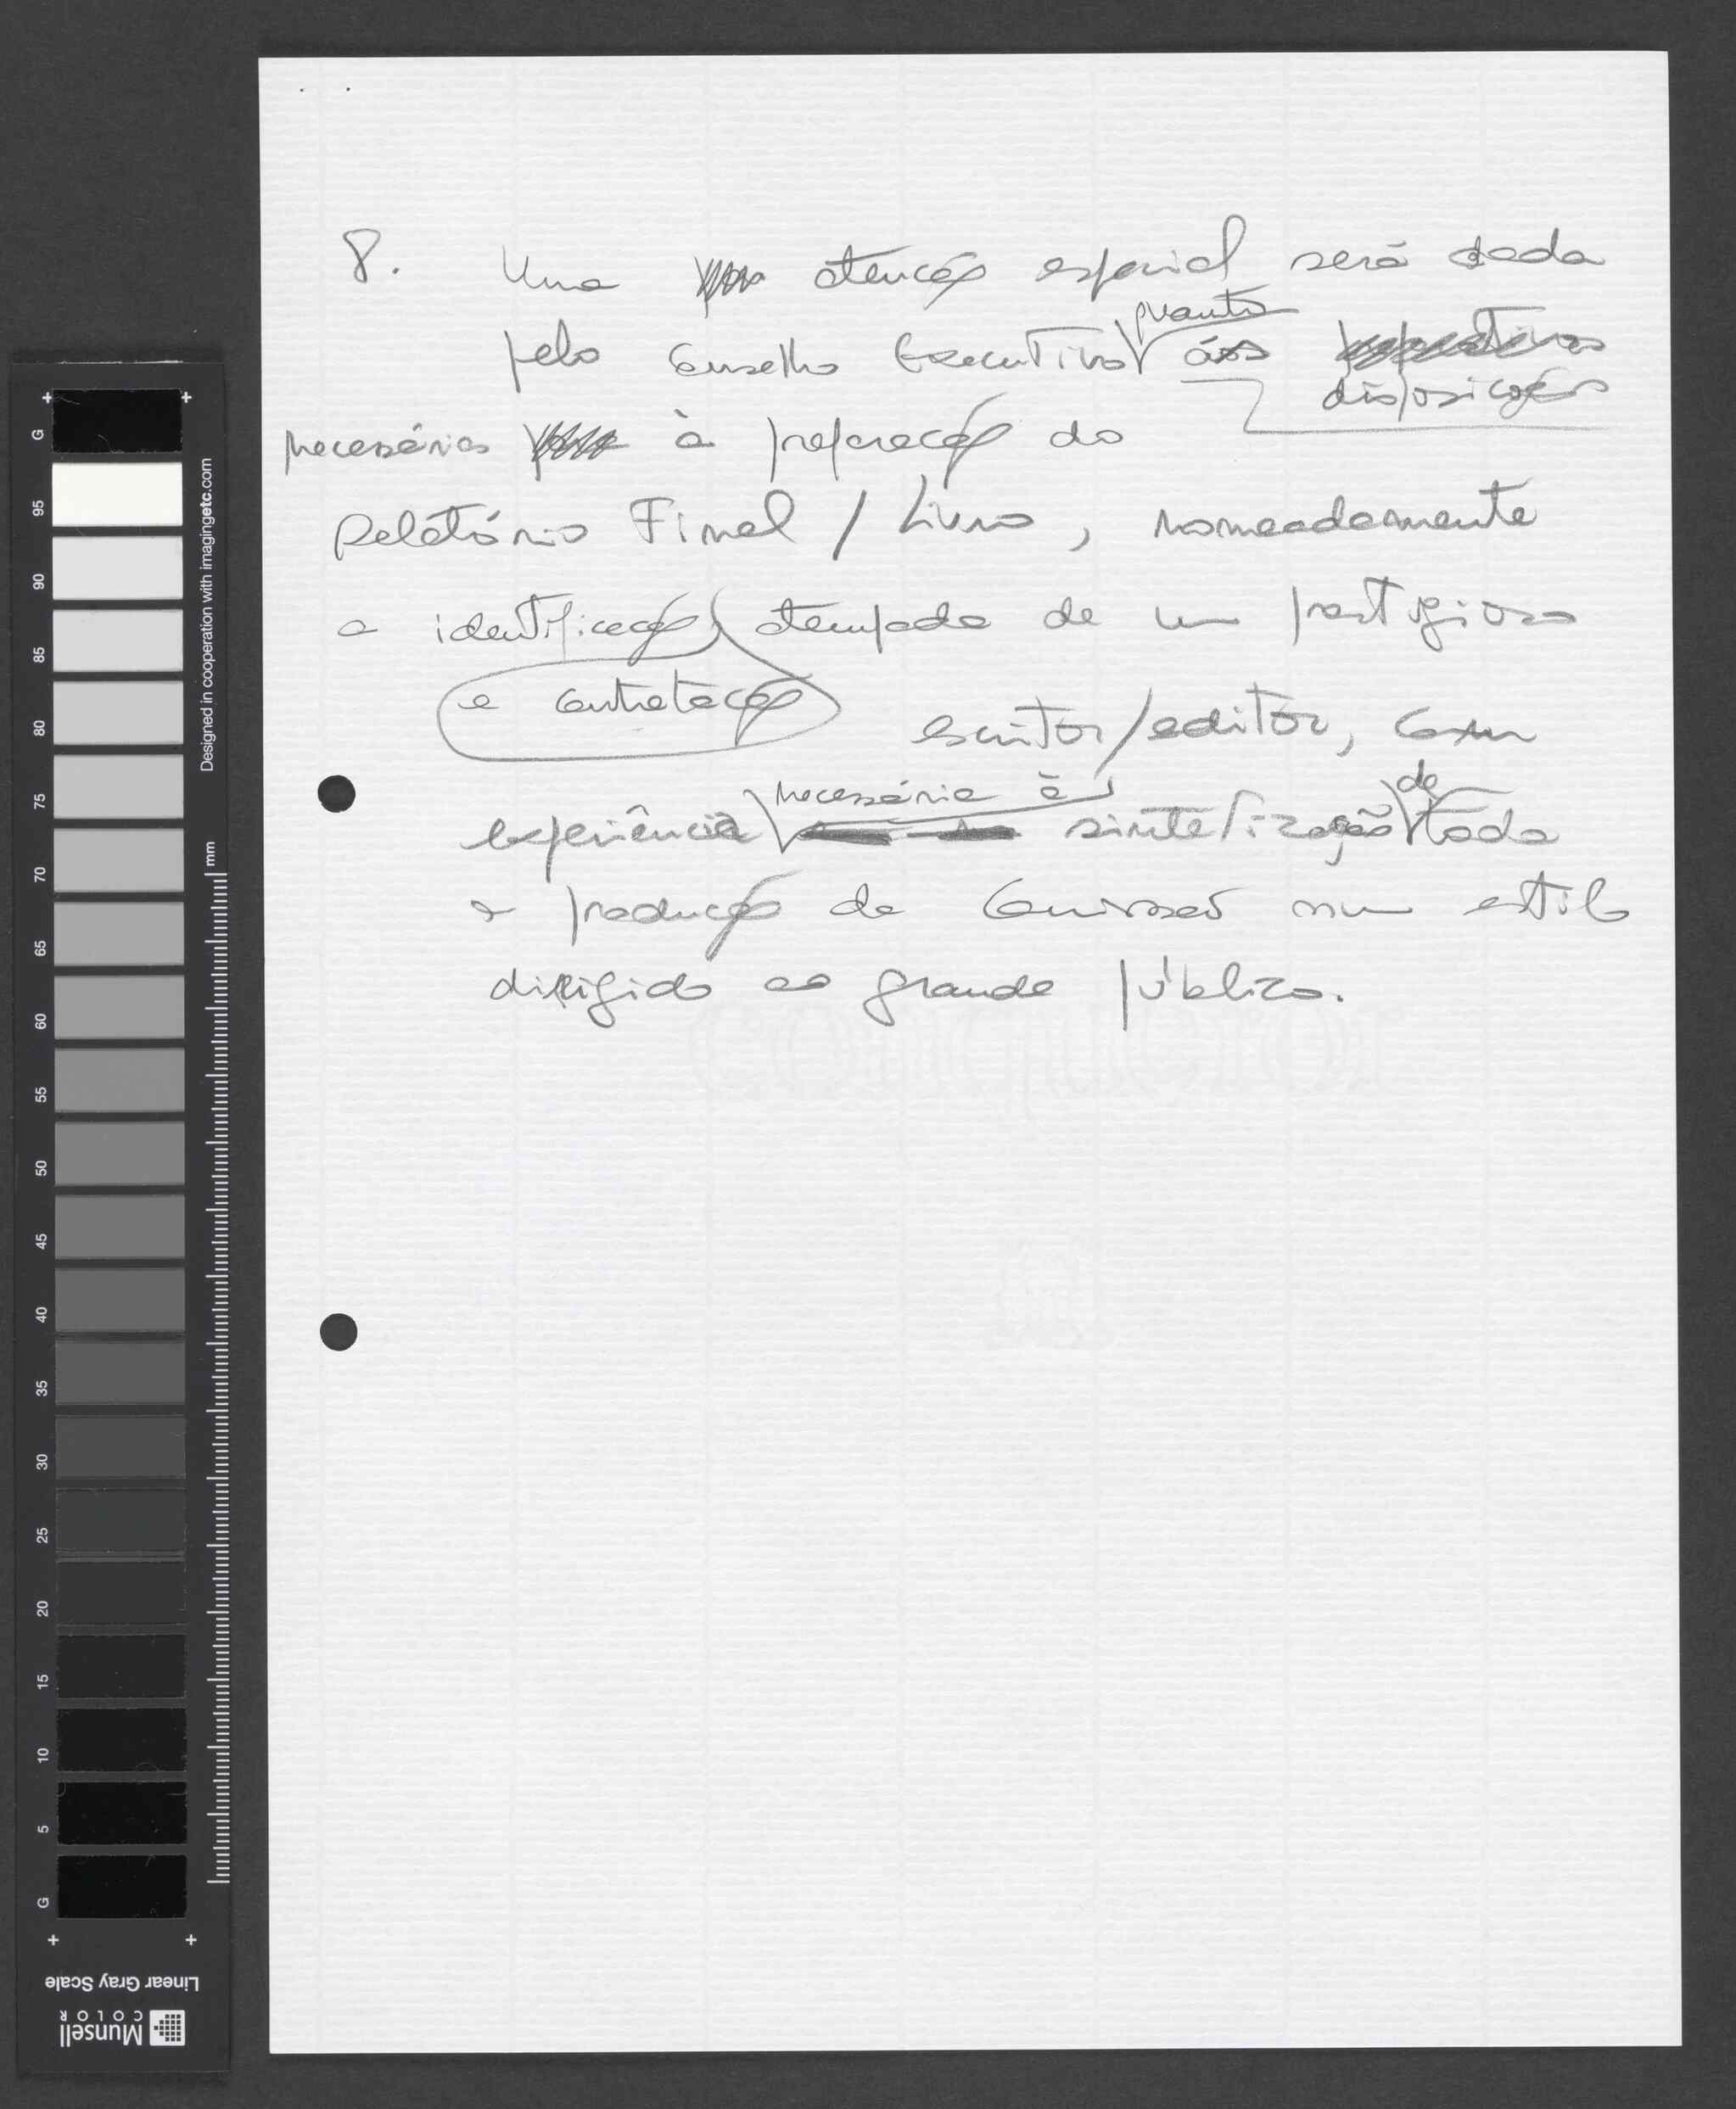 8. Uma atenção especial será dada
quanto
pelo Conselho Executivo às
disposições
necessárias à preparação do
Relatório Final / Livro, nomeadamente
a identificação atempada de um prestigioso
e contratação
escritor/editor, com
necessária à
de
experiência sintetização toda
a produção da Comissão num estilo
dirigido ao grande público.
Conqueror
G 95 90 85 80 75 70 65 60 55 50 45 40 35 30 25 20 15 10 5 G
Designed in cooperation with imagingetc.com
mm
Linear Gray Scale
Munsell
COLOR